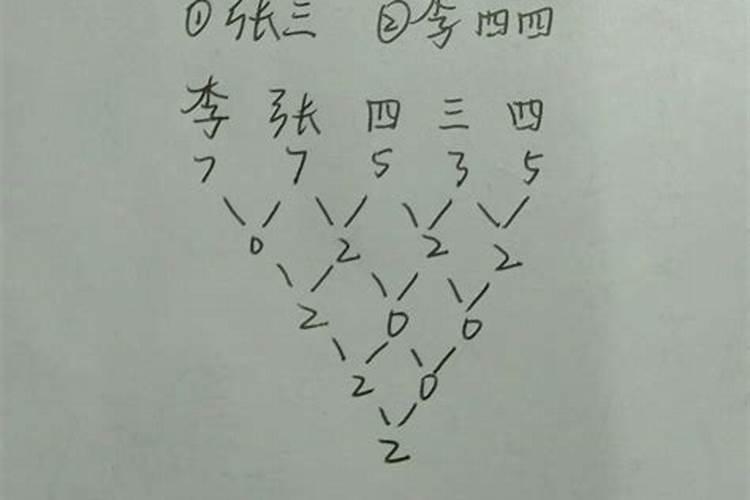 ① 张三 ② 李四四
李 张 四 三 四
7 7 5 3 5
0 2 2 2
2 0 0
2 0
2